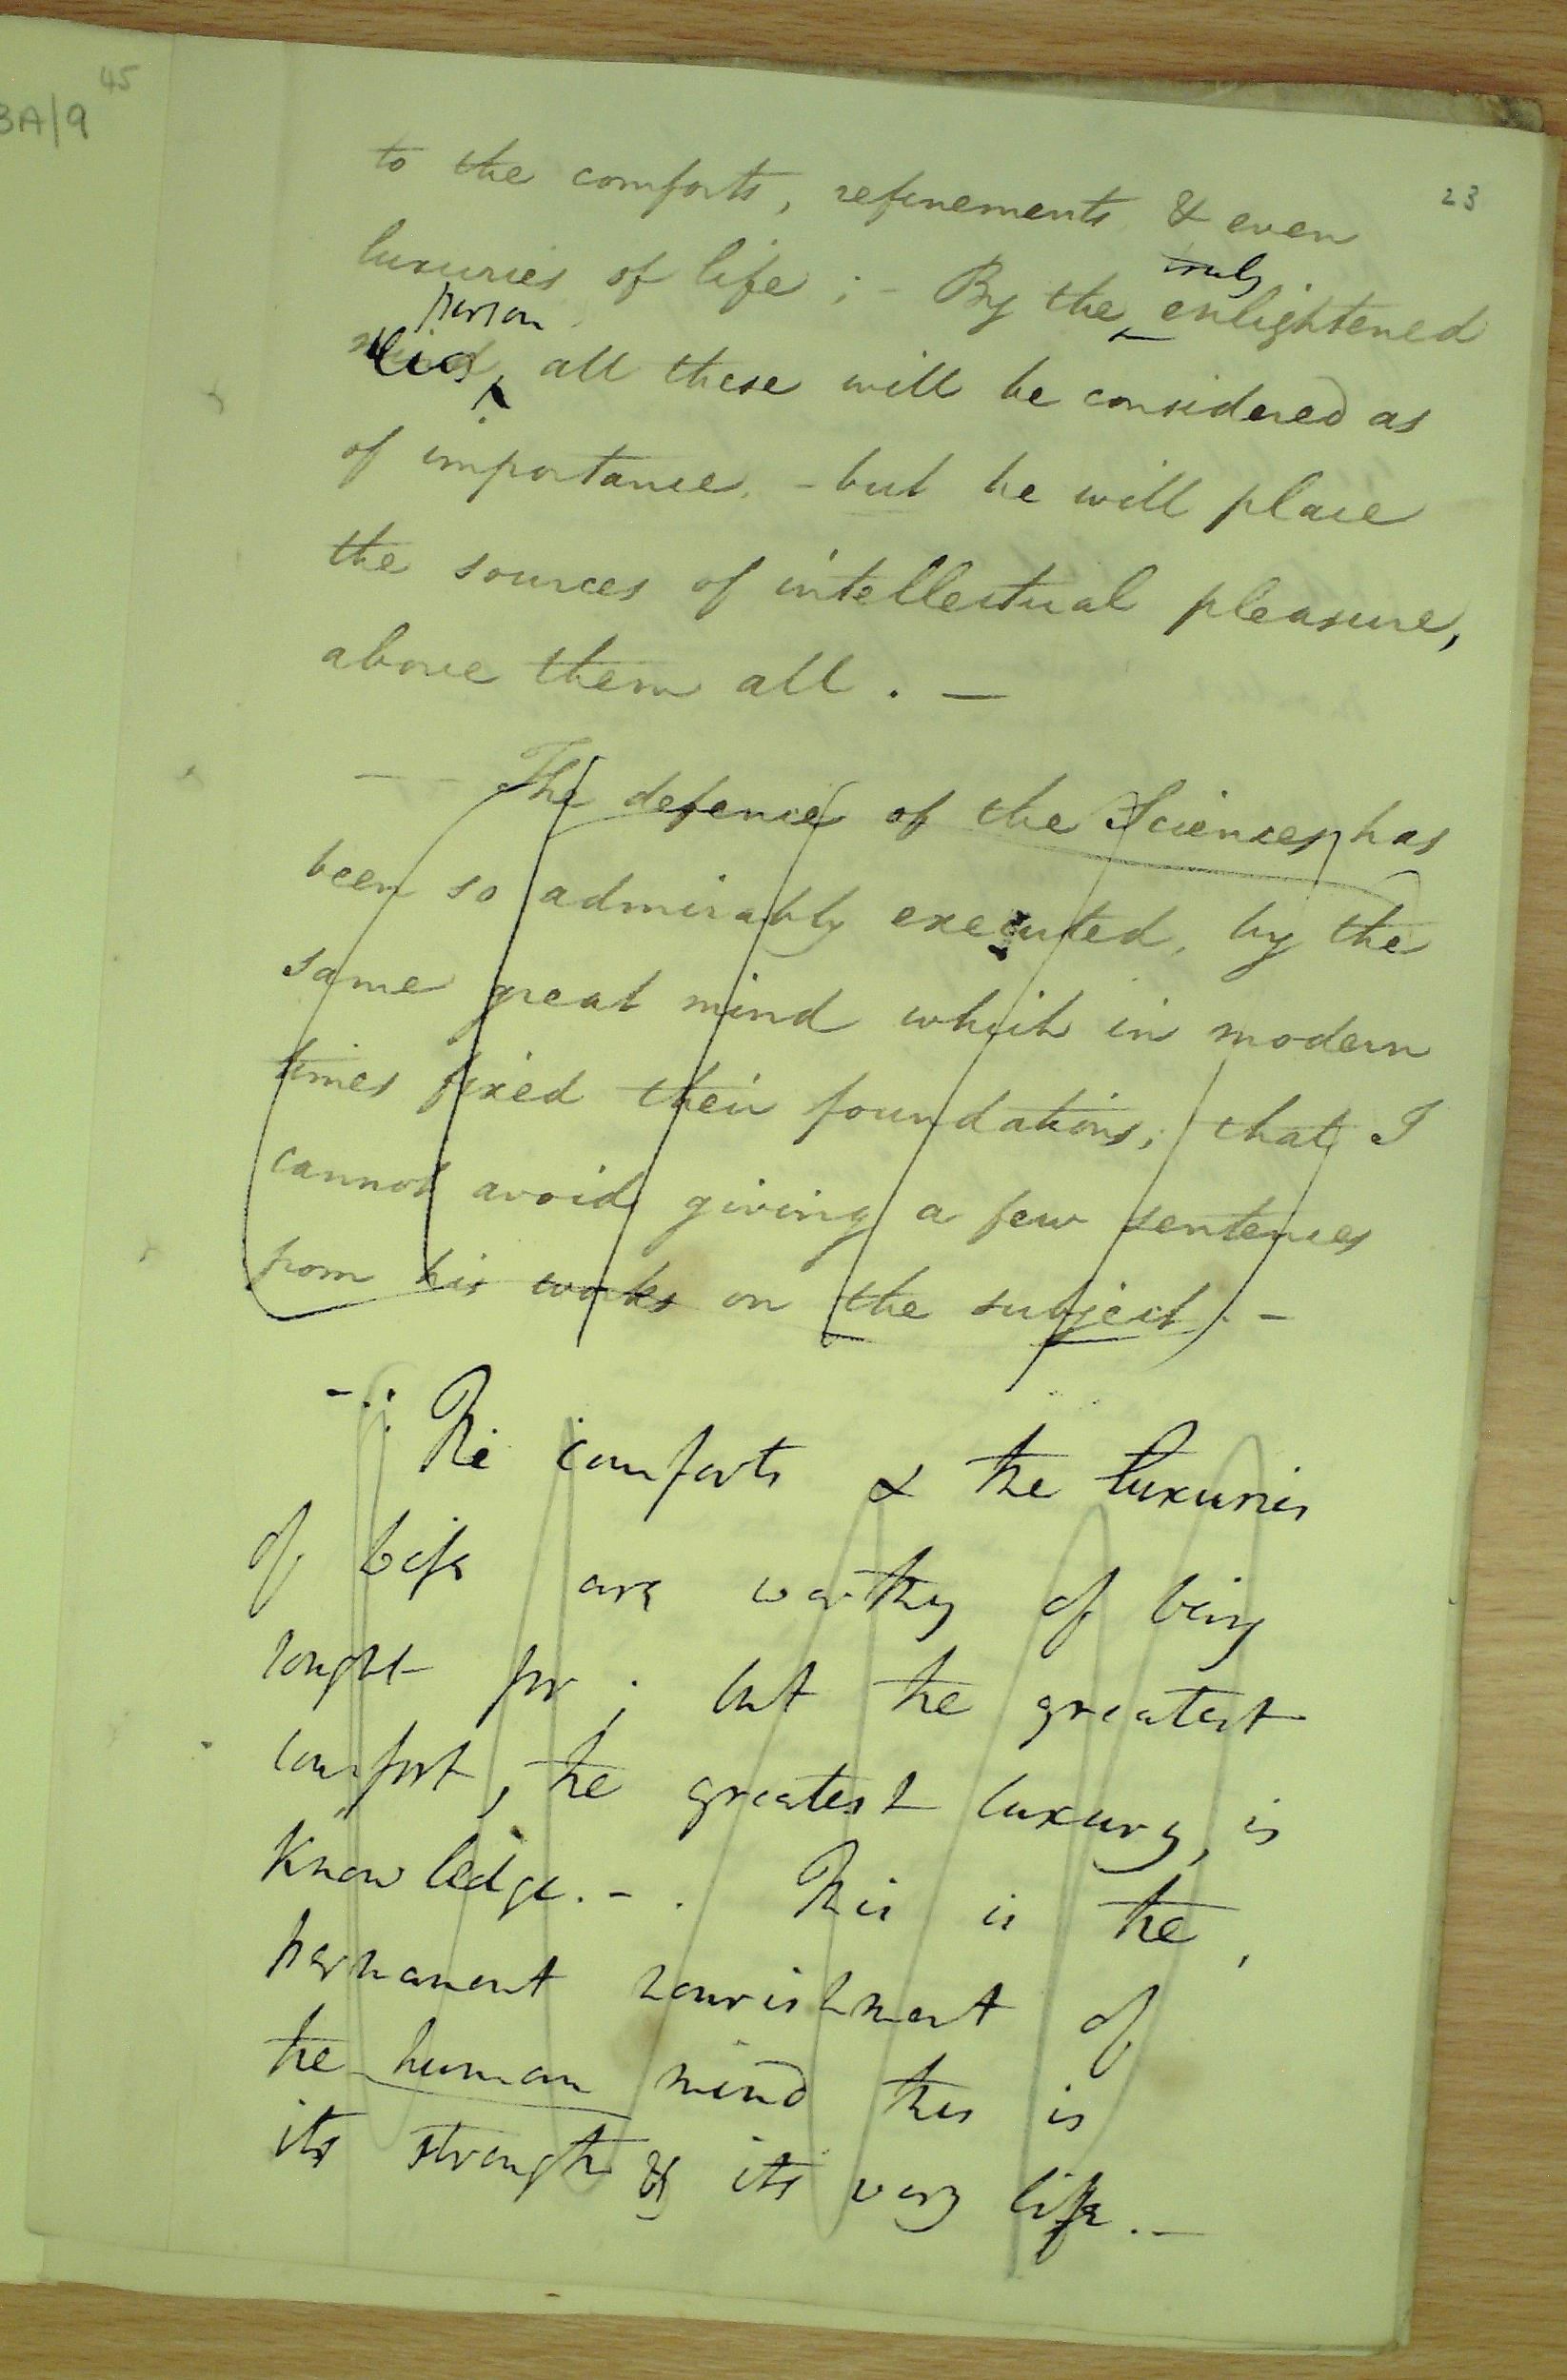 45
3A/9
23
to the comforts, refinements & even
truly
luxuries of life; - By the enlightened
person
mind, all these will be considered as
of importance. - but he will place
the sources of intellectual pleasure,
above them all. —
— - The defence of the Sciences has
been so admirably executed, by the
same great mind which in modern
times fixed their foundations; that I
cannot avoid giving a few sentences
from his works on the subject. -
The comforts & the luxuries
of life are worthy of being
sought for; but the greatest
comfort, the greatest luxury, is
Knowledge. - . This is the
permanent nourishment of
the human mind this is
its strength & its very life. —